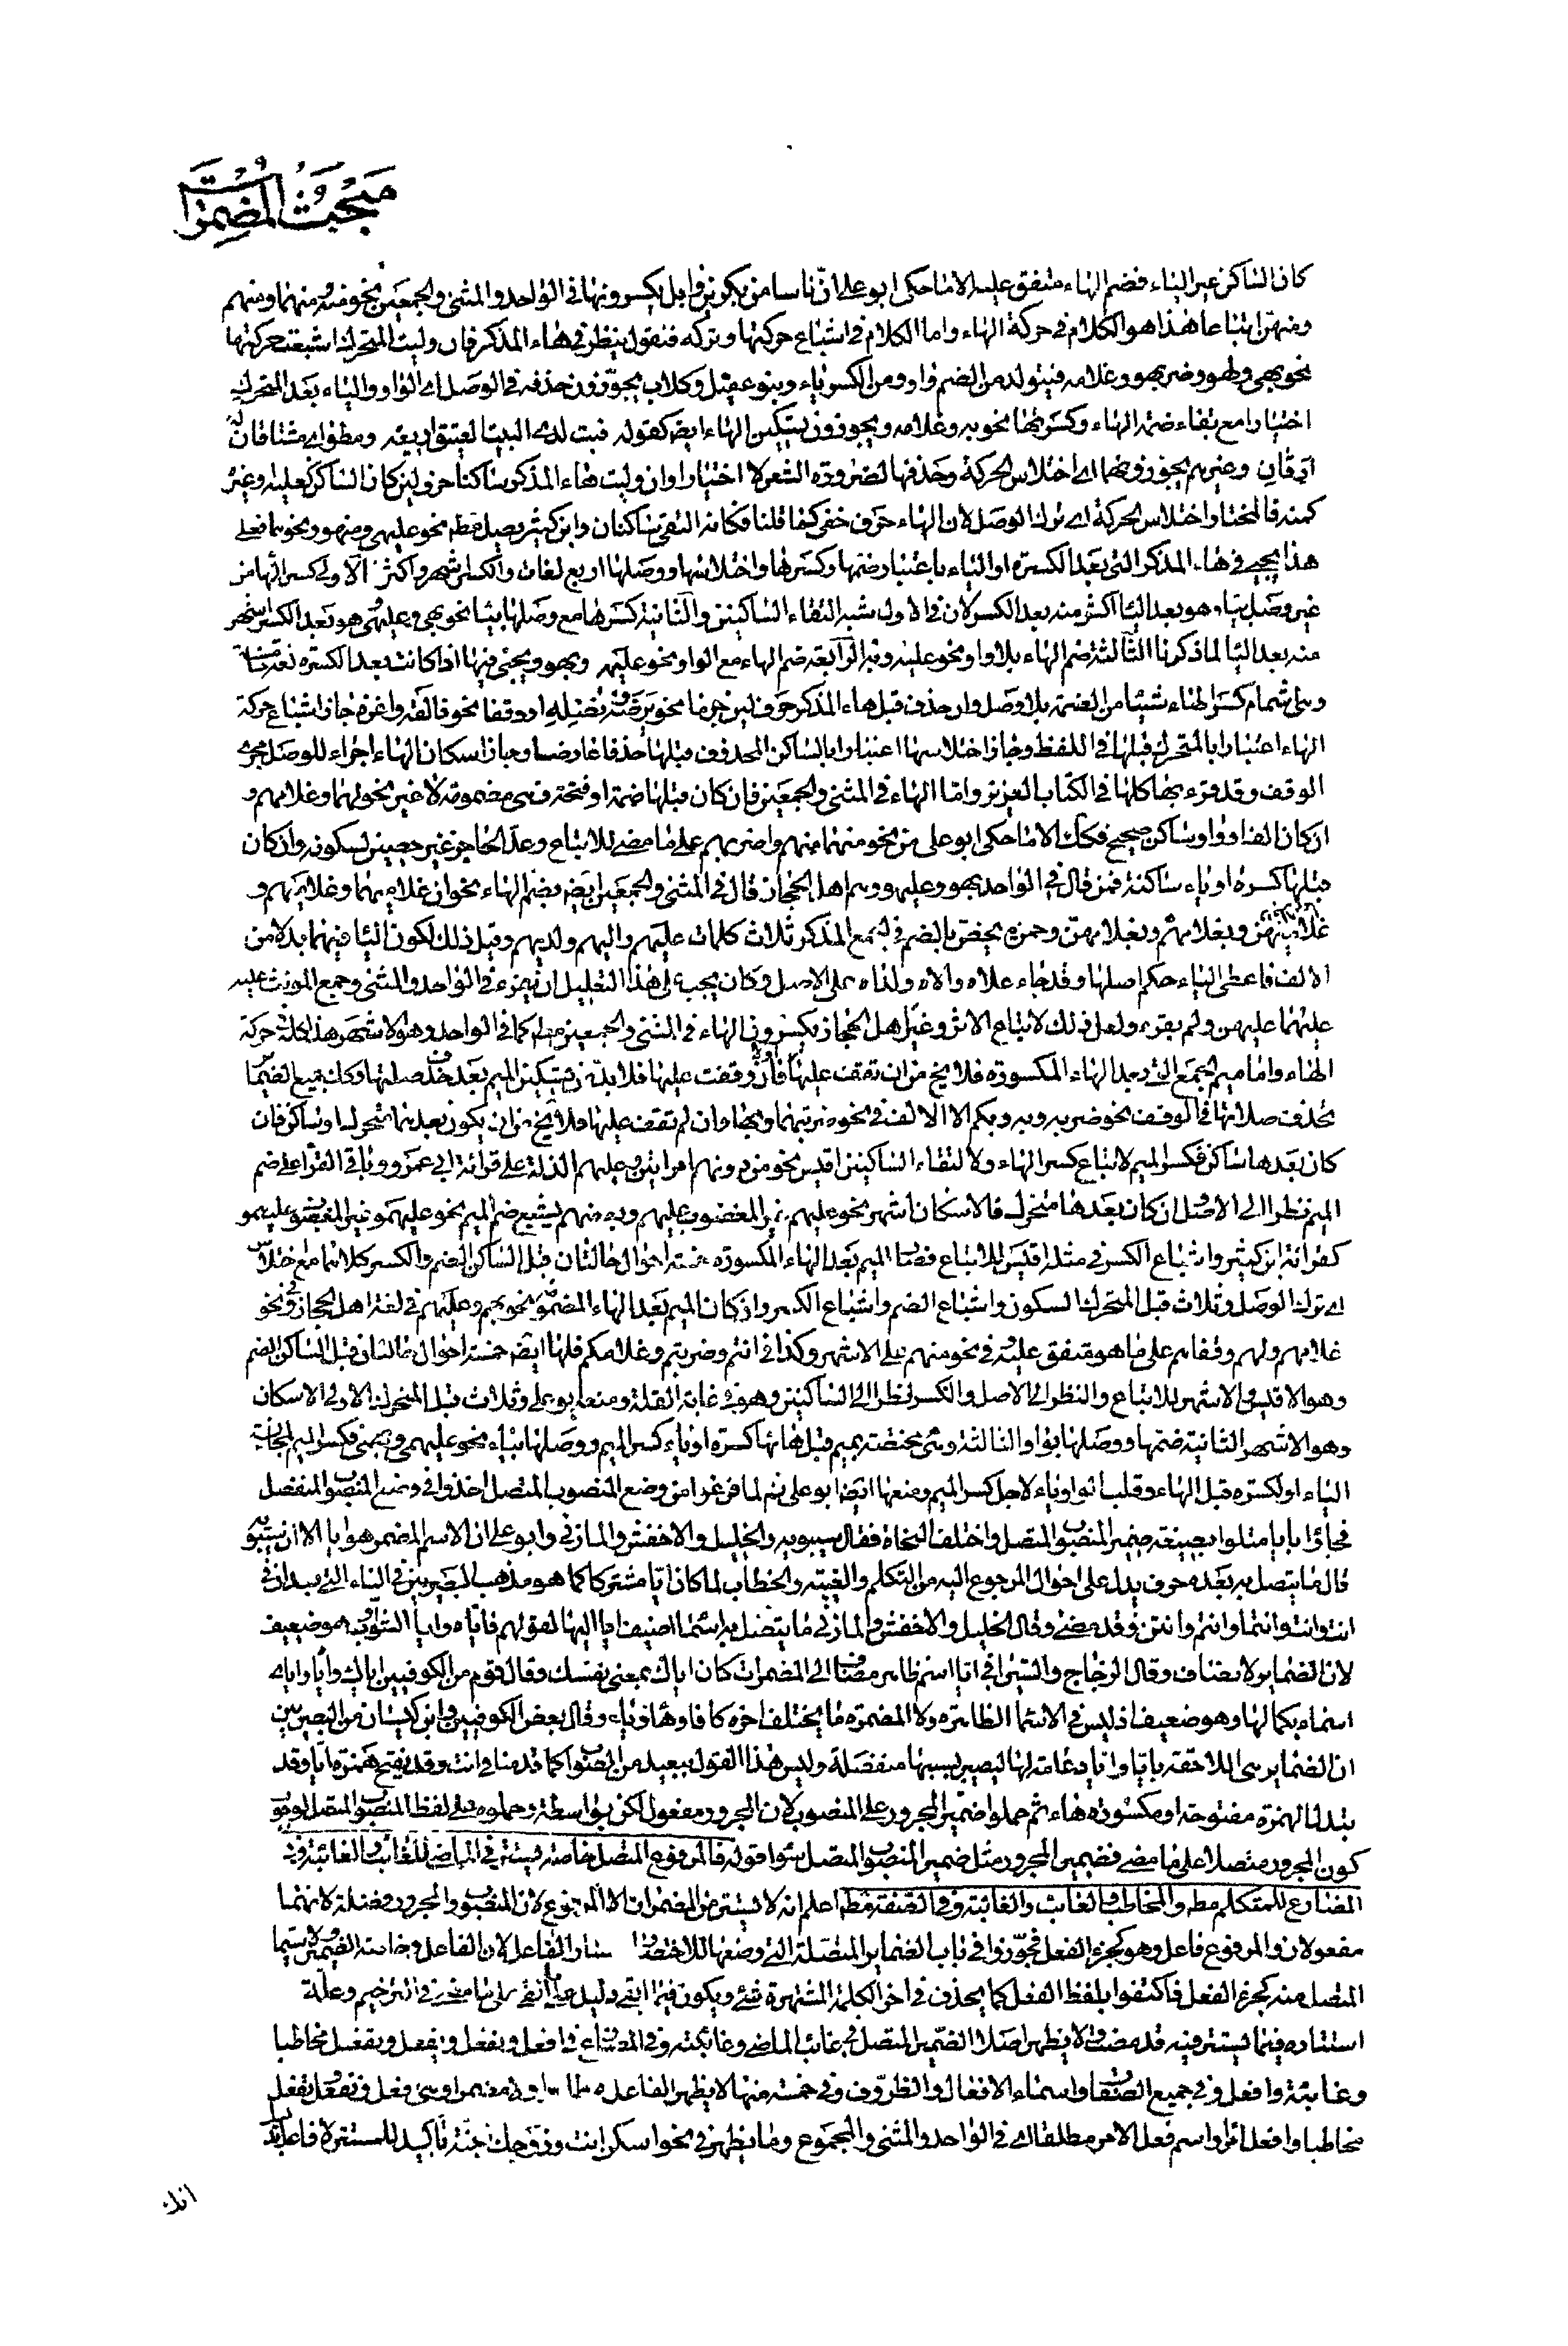 مبحث المضمرات
كان الساكن غير الياء فضم الهاء متفق عليه الا ما حكى ابو على ان ناسا من بكر بن وايل يكسرونها فى الواحد والمثنى والجمعين نحو منه ومنهما ومنهم
ومنهن اتباعا هذا هو الكلام فى حركة الهاء واما الكلام فى اشباع حركتها وتركه فنقول ينظر فى هاء المذكر فان وليت المتحرك اشبعت حركتها
نحو بهى ولهو وضربهو وغلامه فيتولد من الضم واو ومن الكسر ياء وبنو عقيل وكلاب يجوزون حذفه فى الوصل اى الواو والياء بعد المتحرك
اختيارا مع بقاء ضمة الهاء وكسرتها نحو به وغلامه ويجوزون تسكين الهاء ايض كقوله فبت لدى البيت العتيق اريغه ومطواى مشتاقان له
ارقان وغيرهم يجوزونهما اى اختلاس الحركة وحذفها لضرورة الشعر لا اختيارا وان وليت هاء المذكر ساكنا حرف لين كان الساكن كعليه وغيره
كمنه فالمختار اختلاس الحركة اى ترك الوصل لان الهاء حرف خفى كما قلنا فكانه التقى ساكنان وابن كثير يصل مط نحو عليهى ومنهو ونحوهما فعلى
هذا يجيئ فى هاء المذكر التى بعد الكسرة او الياء باعتبار ضمها وكسرها واختلاسها ووصلها اربع لغات والكسر اشهر واكثر الاولى كسرالها من
غير وصل بياء وهو بعد اليا اكثر منه بعد الكسر لان فى الاول شبه التقاء الساكنين والثانية كسرها مع وصلها بيا نحو بهى وعليهى وهو بعد الكسر اشهر
منه بعد اليا لما ذكرنا الثالثة ضم الهاء بلا واو نحو عليه وبه الرابعة ضم الهاء مع الواو نحو عليهو وبهو ويجئ فيها اذا كانت بعد الكسرة لغة
وهى اشمام كسر الهاء شيئا من الضمة بلا وصل وان حذف قبل هاء المذكر حرف لين جزما نحو يرضه ونصله او وقفا نحو فالقه واغزه جاز اشباع حركة
الهاء اعتبارا بالمتحرك قبلها فى اللفظ وجاز اختلاسها اعتبارا بالساكن المحذوف قبلها حذفا عارضا وجاز اسكان الهاء اجراء للوصل مجرى
الوقف وقد قرء بها كلها فى الكتاب العزيز واما الهاء فى المثنى والجمعين فان كان قبلها ضمة او فتحة فهى مضمومة لا غير نحو لهما وغلامهم و
ان كان الفا او واوا وساكن صحيح فكك الا ما حكى ابو على من نحو منهما منهم واضربهم على ما مضى للاتباع وعد الحاجز غير حصين لسكونه وان كان
قبلها كسرة او ياء ساكنة فمن قال فى الواحد بهو وعليهو وهم اهل الحجاز قال فى المثنى والجمعين ايض بضم الهاء نحو ان غلاميهما وغلاميهم و
غلاميهن وبغلامهم وبغلامهن وحمزة يخص بالضم فى جمع المذكر ثلاث كلمات عليهم واليهم ولديهم وقيل ذلك لكون اليا فيها بدلا من
الالف فاعطى الياء حكم اصلها وقد جاء علاه والاه ولداه على الاصل وكان يجب على هذا التعليل ان يقرء فى الواحد والمثنى وجمع المونث عليه
عليهما عليهن ولم يقرء ولعل ذلك لاتباع الاثر وغير اهل الحجاز يكسرون الهاء فى المثنى والجمعين مط كما فى الواحد وهو الاشهر هذا كله حركة
الهاء واما ميم الجمع التى بعد الهاء المكسورة فلا يخ من ان تقف عليها او لا فان وقفت عليها فلا بد من تسكين الميم بعد حذف صلتها وكك جميع الضمائر
تحذف صلاتها فى الوقف نحو ضربه وبه وبكم الا الالف فى نحو ضربتهما وبها وان لم تقف عليها فلا يخ من ان يكون بعدها متحرك او ساكن فان
كان بعدها ساكن فكسر الميم لاتباع كسر الهاء ولالتقاء الساكنين اقيس نحو من دونهم امراتين وعليهم الذلة على قرائة ابى عمرو وباقى القراء على ضم
الميم نظرا الى الاصل وان كان بعدها متحرك فالاسكان اشهر نحو عليهم غير المغضوب عليهم وبه ومنهم من يشبع ضم الميم نحو عليهمو غير المغضوب عليهمو
كقرائة ابن كثير واشباع الكسر فى مثله اقيس للاتباع فصار للميم بعد الهاء المكسورة خمسة احوال حالتان قبل الساكن الضم والكسر كلاهما مع اختلاس
اى ترك الوصل وثلاث قبل المتحرك السكون واشباع الضم واشباع الكسر وان كان الميم بعد الهاء المضمومة نحو بهم وعليهم فى لغة اهل الحجاز وفى نحو
غلامهم ولهم وقفاهم على ما هو متفق عليه وفى نحو منهم على الاشهر وكذا فى انتم وضربتم وغلامكم فلها ايض خمسة احوال حالتان قبل الساكن الضم
وهو الاقيس والاشهر للاتباع والنظر الى الاصل والكسر نظرا الى الساكنين وهو فى غاية القلة ومنعه ابو على وثلاث قبل المتحرك الاولى الاسكان
وهو الاشهر الثانية ضمها ووصلها بواو والثالثة وهى مختصة بميم قبل هائها كسرة او ياء كسر الميم ووصلها بياء نحو عليهمى وبهمى فكسر الميم لمجانسة
الياء او لكسرة قبل الهاء وقلب الواو ياء لاجل كسر الميم ومنعها ايضا ابو على ثم لما فرغوا من وضع المنصوب المتصل اخذوا فى وضع المنصوب المنفصل
فجاؤا بايا متلوا بصيغة ضمير المنصوب المتصل واختلف النحاة فقال سيبويه والخليل والاخفش والمازنى وابو على ان الاسم المضمر هو ايا الا ان سيبويه
قال ما يتصل به بعده حرف يدل على احوال المرجوع اليه من التكلم والغيبة والخطاب لما كان ايا مشتركا كما هو مذهب البصريين فى التاء التى بعد ان فى
انت وانت وانتما وانتم وانتن وقد مضى وقال الخليل والاخفش والمازنى ما يتصل به اسما اضيف ايا اليها لقولهم فاياه وايا الشواب وهو ضعيف
لان الضماير لا تضاف وقال الزجاج والسيرافى ايا اسم ظاهر مضاف الى المضمرات كان اياك بمعنى نفسك وقال قوم من الكوفيين اياك واياه واياى
اسماء بكمالها وهو ضعيف اذ ليس فى الاسماء الظاهرة ولا المضمرة ما يختلف اخره كافا وهاء وياء وقال بعض الكوفيين وابن كيسان من البصريين
ان الضماير هى اللاحقة بايا وايا دعامة لها ليصير بسببها منفصلة وليس هذا القول ببعيد من الصواب كما قدمنا فى انت وقد يفتح همزة ايا وقد
يبدل الهمزة مفتوحة او مكسورة هاء ثم حملوا ضمير المجرور على المنصوب لان المجرور مفعول لكن بواسطة وحملوه على لفظ المنصوب المتصل لوجوب
كون المجرور متصلا على ما مضى فضمير المجرور مثل ضمير المنصوب المتصل سواء قوله فالمرفوع المتصل خاصة يستتر فى الماضى للغائب والغائبة وفى
المضارع للمتكلم مط والمخاطب والغائب والغائبة وفى الصفة مط اعلم انه لا يستتر من المضمرات الا المرفوع لان المنصوب والمجرور فضلة لانهما
مفعولان والمرفوع فاعل وهو كجزء الفعل فجوزوا فى باب الضماير المتصلة التى وضعها للاختصار استتار الفاعل لان الفاعل وخاصة الضمير ولا سيما
المتصل منه كجزء الفعل فاكتفوا بلفظ الفعل كما يحذف فى اخر الكلمة المشتهرة شئ ويكون فيما ابقى دليل على ما القى على ما مضى فى الترخيم وعلة
استتاره فيما يستتر فيه قد مضت ولا يظهر اصلا الضمير المتصل فى غائب الماضى وغائبته وفى المضارع فى افعل ونفعل ويفعل وتفعل مخاطبا
وغايبة وافعل وفى جميع الصفات واسماء الافعال والظروف وفى خمسة منها لا يظهر الفاعل لا ظاهرا ولا مضمرا وهى افعل ونفعل وتفعل
مخاطبا وافعل امرا واسم فعل الامر مطلقا اى فى الواحد والمثنى والمجموع وما يظهر فى نحو اسكن انت وزوجك الجنة تاكيد للمستتر لا فاعل
انك